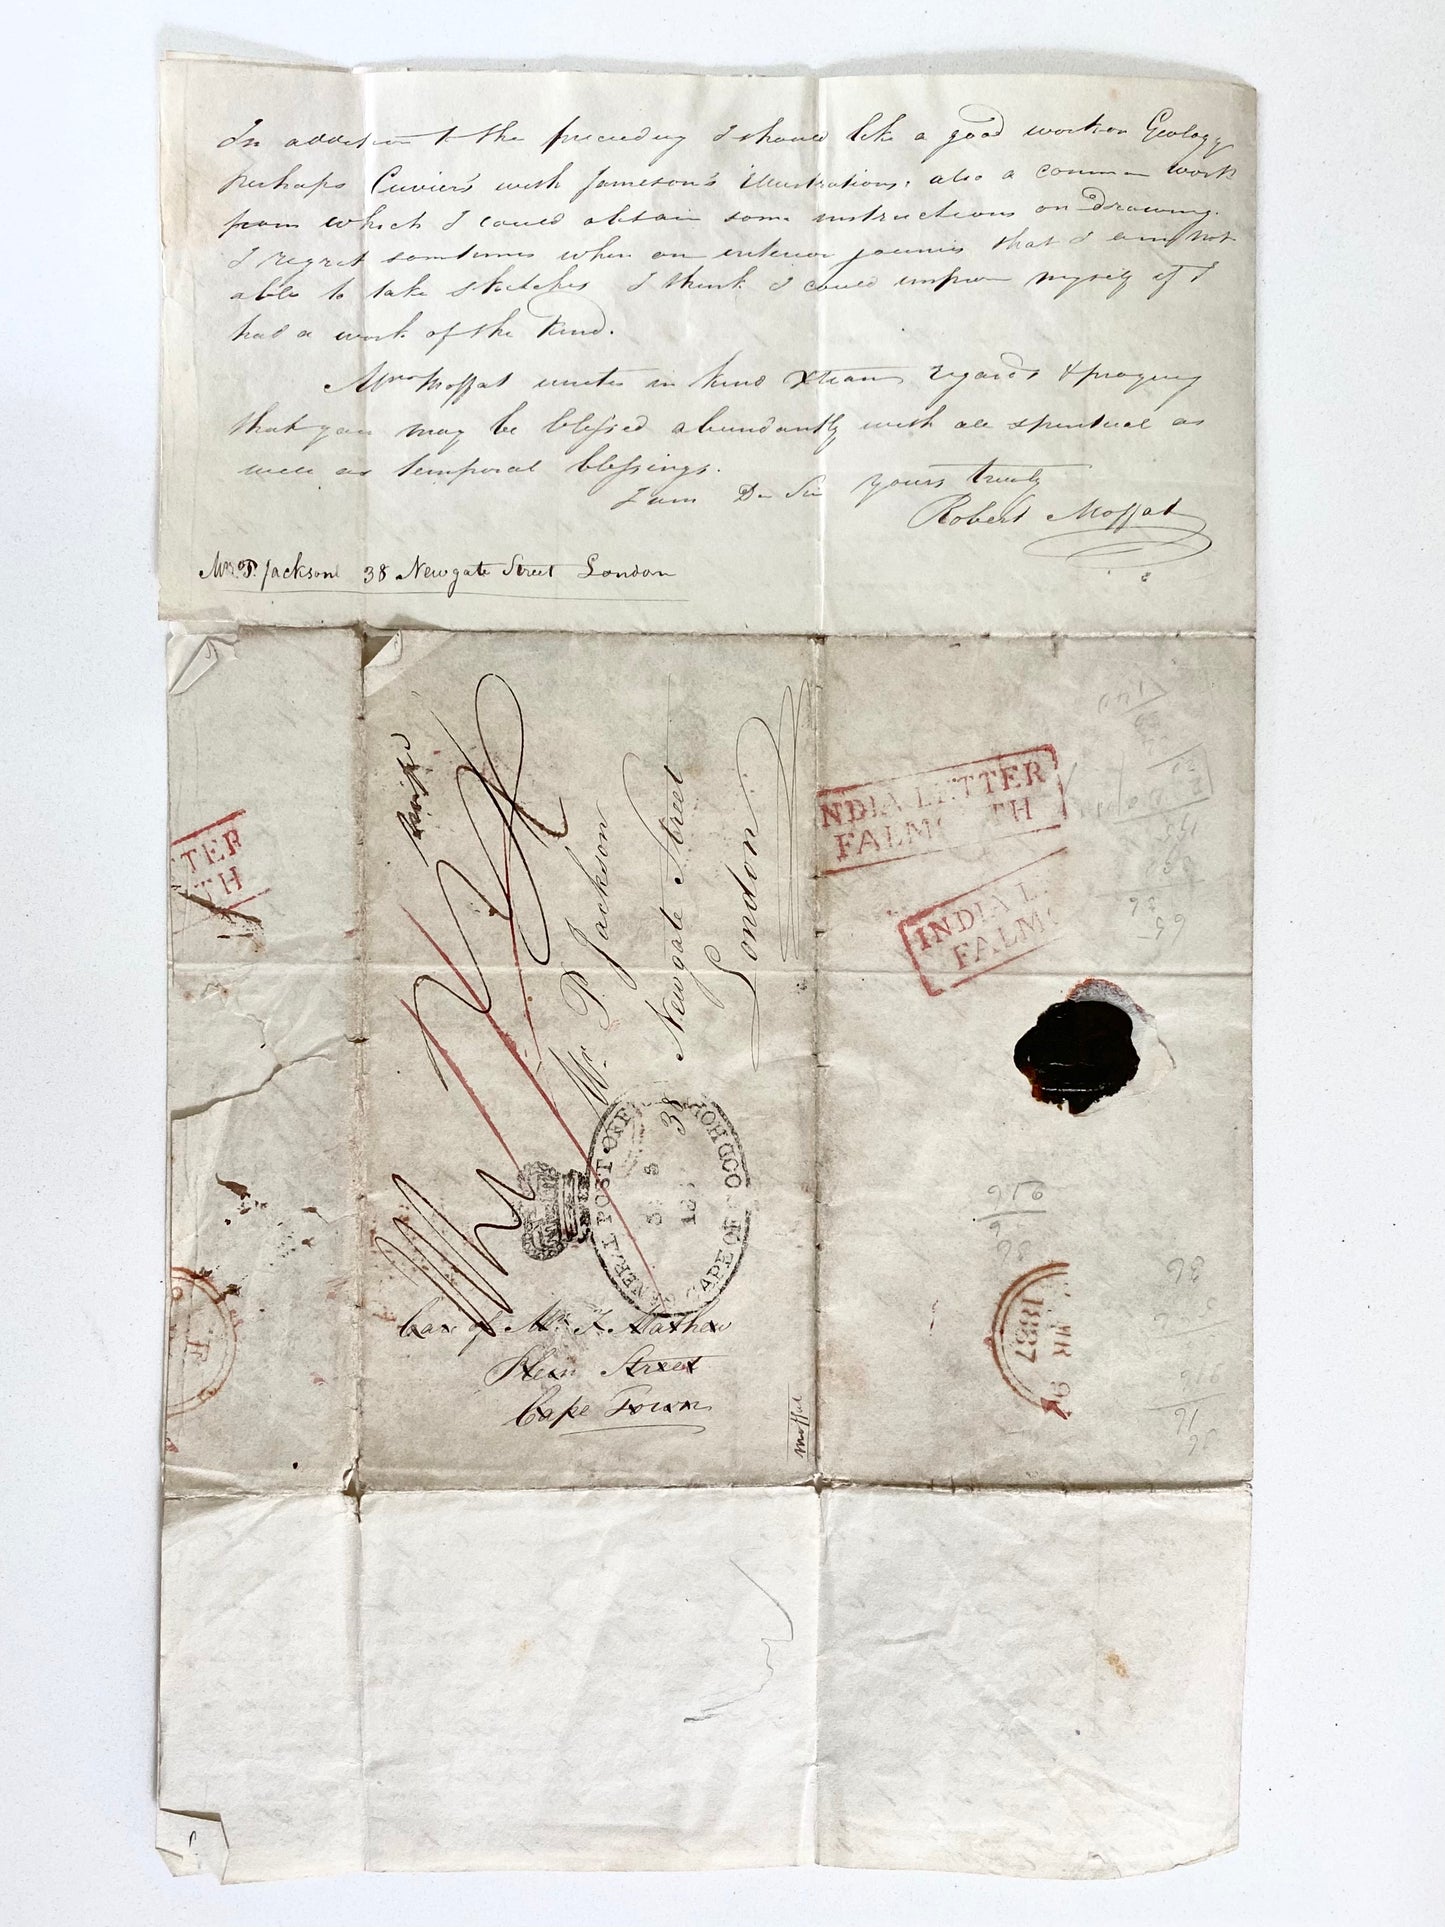 In addition to the preceding I should like a good work on Geology
perhaps Cuvier's with Jameson's illustrations, also a common work
from which I could obtain some instructions on Drawing.
I regret sometimes when on interior journies that I am not
able to take sketches I think I could improve myself if I
had a work of the kind.
Mrs Moffat unites in kind Xtian regards & praying
that you may be blessed abundantly with all spiritual as
well as temporal blessings.
I am Dr Sir yours truly
Robert Moffat
Mr. P. Jackson 38 Newgate Street London
Mr. P. Jackson
38 Newgate Street
London
Care of Mr. J. Mathew
Street
Cape Town
Moffat
INDIA LETTER
FALMOUTH
INDIA L
FALMO
TER
TH
GENERAL POST OFFICE
CAPE OF GOOD HOPE
MR
1837